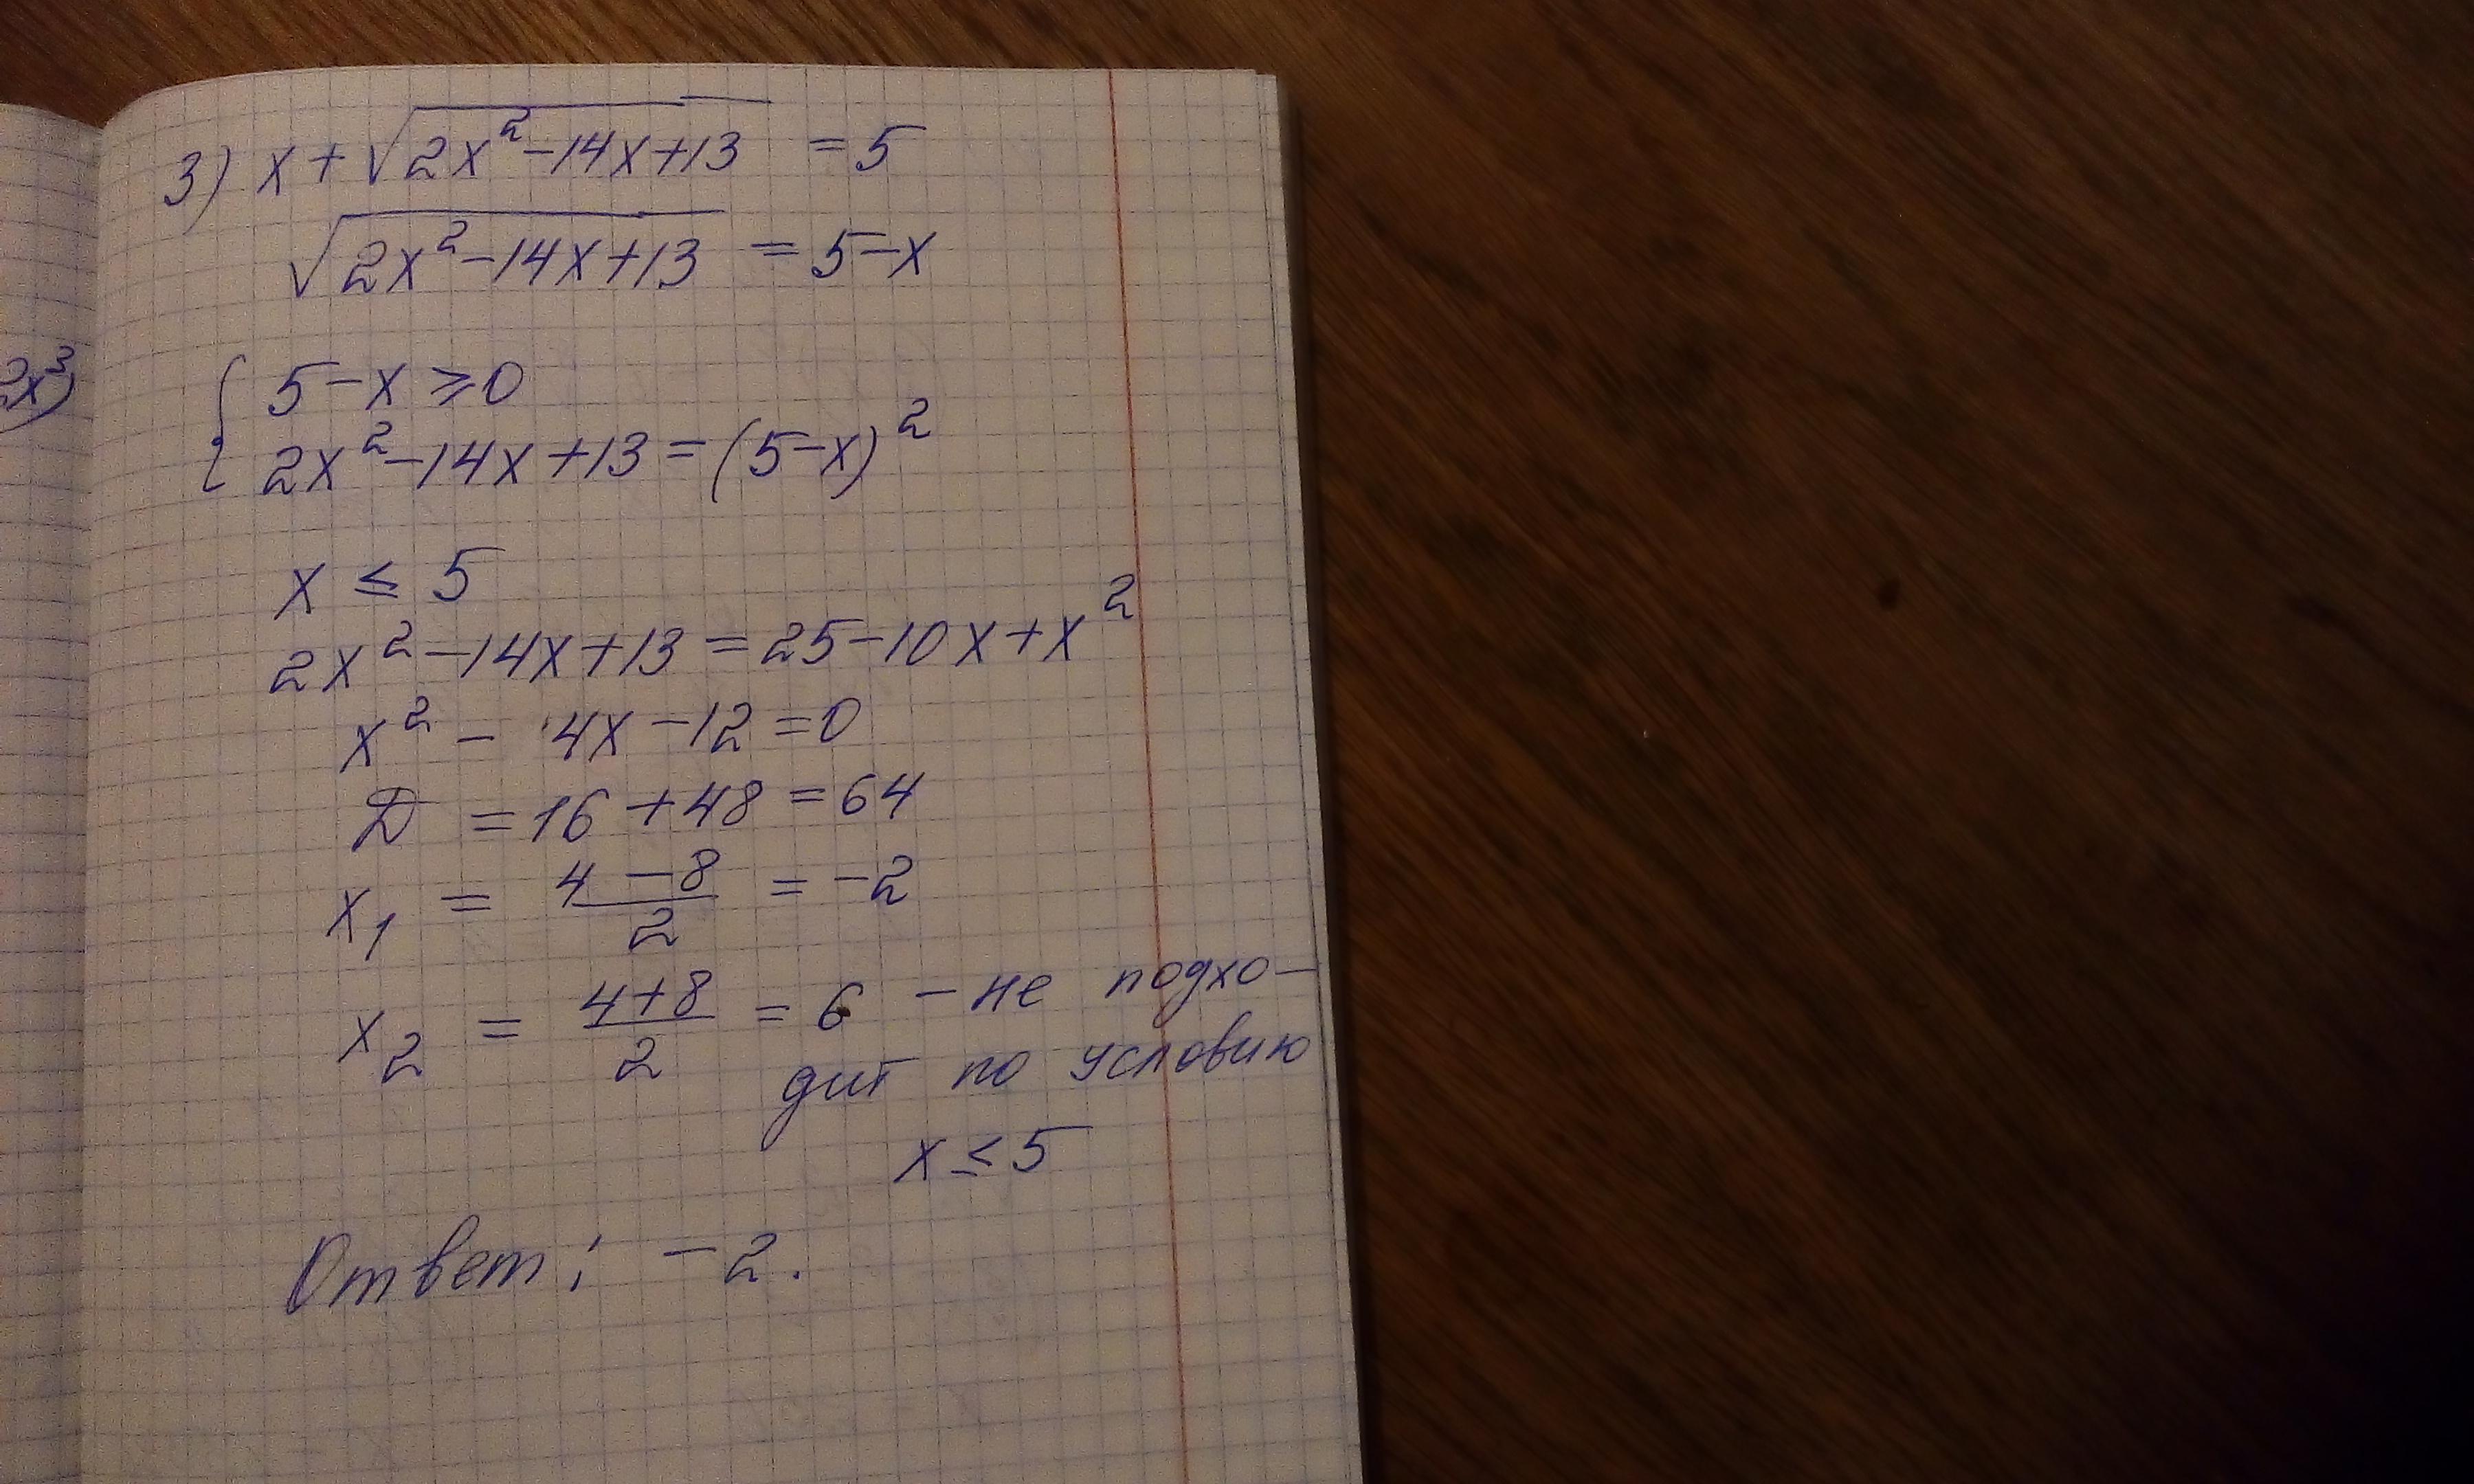 3) x + √(2x² - 14x + 13) = 5
√(2x² - 14x + 13) = 5 - x
2x³)
{ 5 - x ≥ 0
2x² - 14x + 13 = (5 - x)²
x ≤ 5
2x² - 14x + 13 = 25 - 10x + x²
x² - 4x - 12 = 0
D = 16 + 48 = 64
x₁ = (4 - 8)/2 = -2
x₂ = (4 + 8)/2 = 6 - не подхо-
дит по условию
x ≤ 5
Ответ: -2.